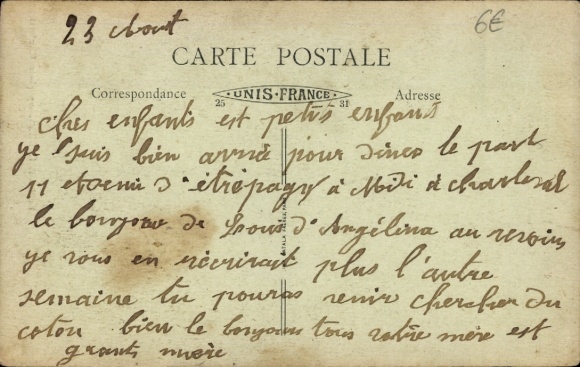 23 Aout
6€
CARTE POSTALE
Correspondance
UNIS-FRANCE
25 31
Adresse
chers enfants est petis enfants
je suis bien arrivé pour diner le part
11 d'étrépagny à Midi à
le bonjour de Louis d'Angélina au revoir
je vous en récrirait plus l'autre
semaine tu pouras venir chercher du
coton bien le bonjour tous votre mère est
grants mère